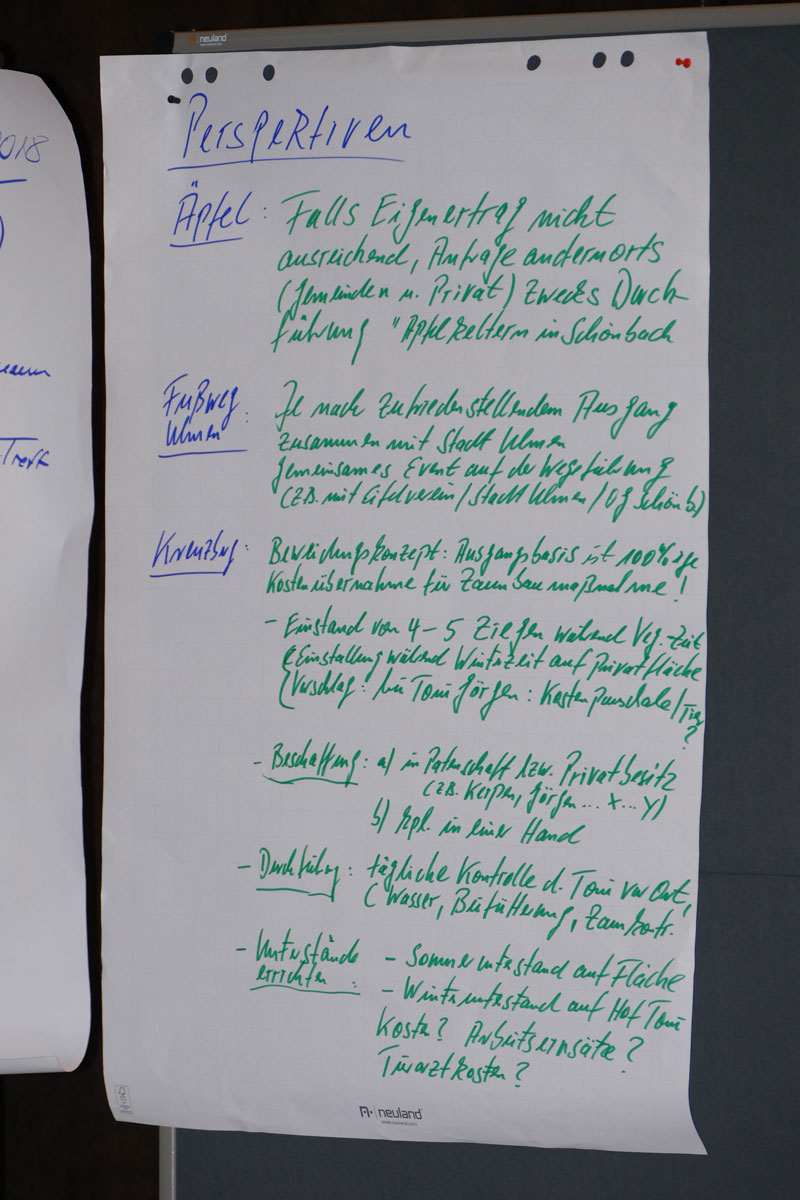 neuland
2018
Treff
Perspektiven
Äpfel : Falls Eigenertrag nicht
ausreichend, Anfrage andernorts
(Gemeinden u. Privat) zwecks Durch-
führung "Äpfelkeltern in Schönbach
Fußweg
Ulmen : Je nach zufriedenstellendem Ausgang
zusammen mit Stadt Ulmen
gemeinsames Event auf der Wegeführung
(z.B. mit Eifelverein/Stadt Ulmen/OG Schönb.)
Kreuzbg : Beweidungskonzept: Ausgangsbasis ist 100%ige
Kostenübernahme für Zaunbaumaßnahme!
- Einstand von 4-5 Ziegen während Veg.-Zeit
Einstallung während Winterzeit auf Privatfläche
(Vorschlag: bei Toni Görgen: Kostenpauschale/Tier
?
- Beschaffung: a) in Patenschaft bzw. Privatbesitz
(z.B. Kerpen, Görgen... X... Y)
b) kpl. in einer Hand
- Durchführg : tägliche Kontrolle d. Toni vor Ort,
(Wasser, Beifütterung, Zaunkontr.
- Unterstände
errichten : - Sommerunterstand auf Fläche
- Winterunterstand auf Hof Toni
Kosten? Arbeitseinsätze?
Tierarztkosten?
neuland
www.neuland.com